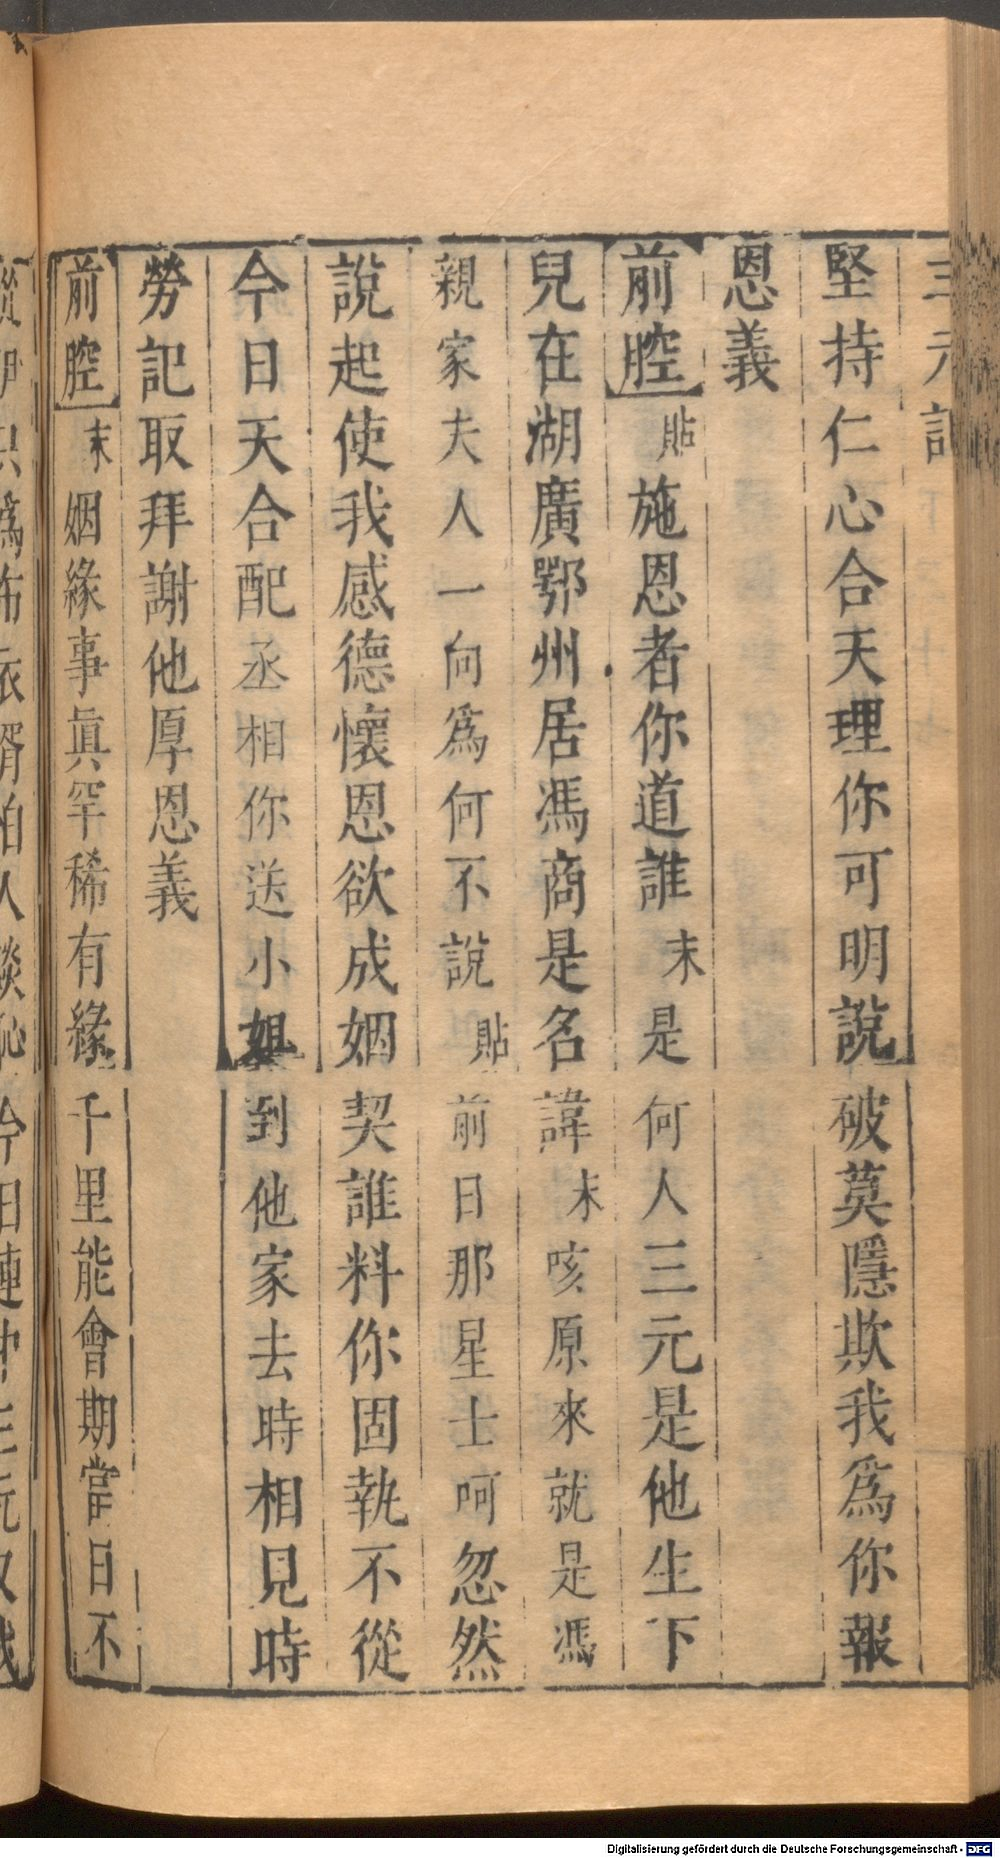 三元記
堅持仁心合天理你可明說破莫隱欺我爲你報
恩義
前腔 貼 施恩者你道誰 末 是何人三元是他生下
兒在湖廣鄂州居馮商是名諱 末 咳原來就是馮
親家夫人一向爲何不說 貼 前日那星士呵忽然
說起使我感德懷恩欲成姻契誰料你固執不從
今日天合配丞相你送小姐到他家去時相見時
勞記取拜謝他厚恩義
前腔 末 姻緣事眞罕稀有緣千里能會期當日不
Digitalisierung gefördert durch die Deutsche Forschungsgemeinschaft - DFG